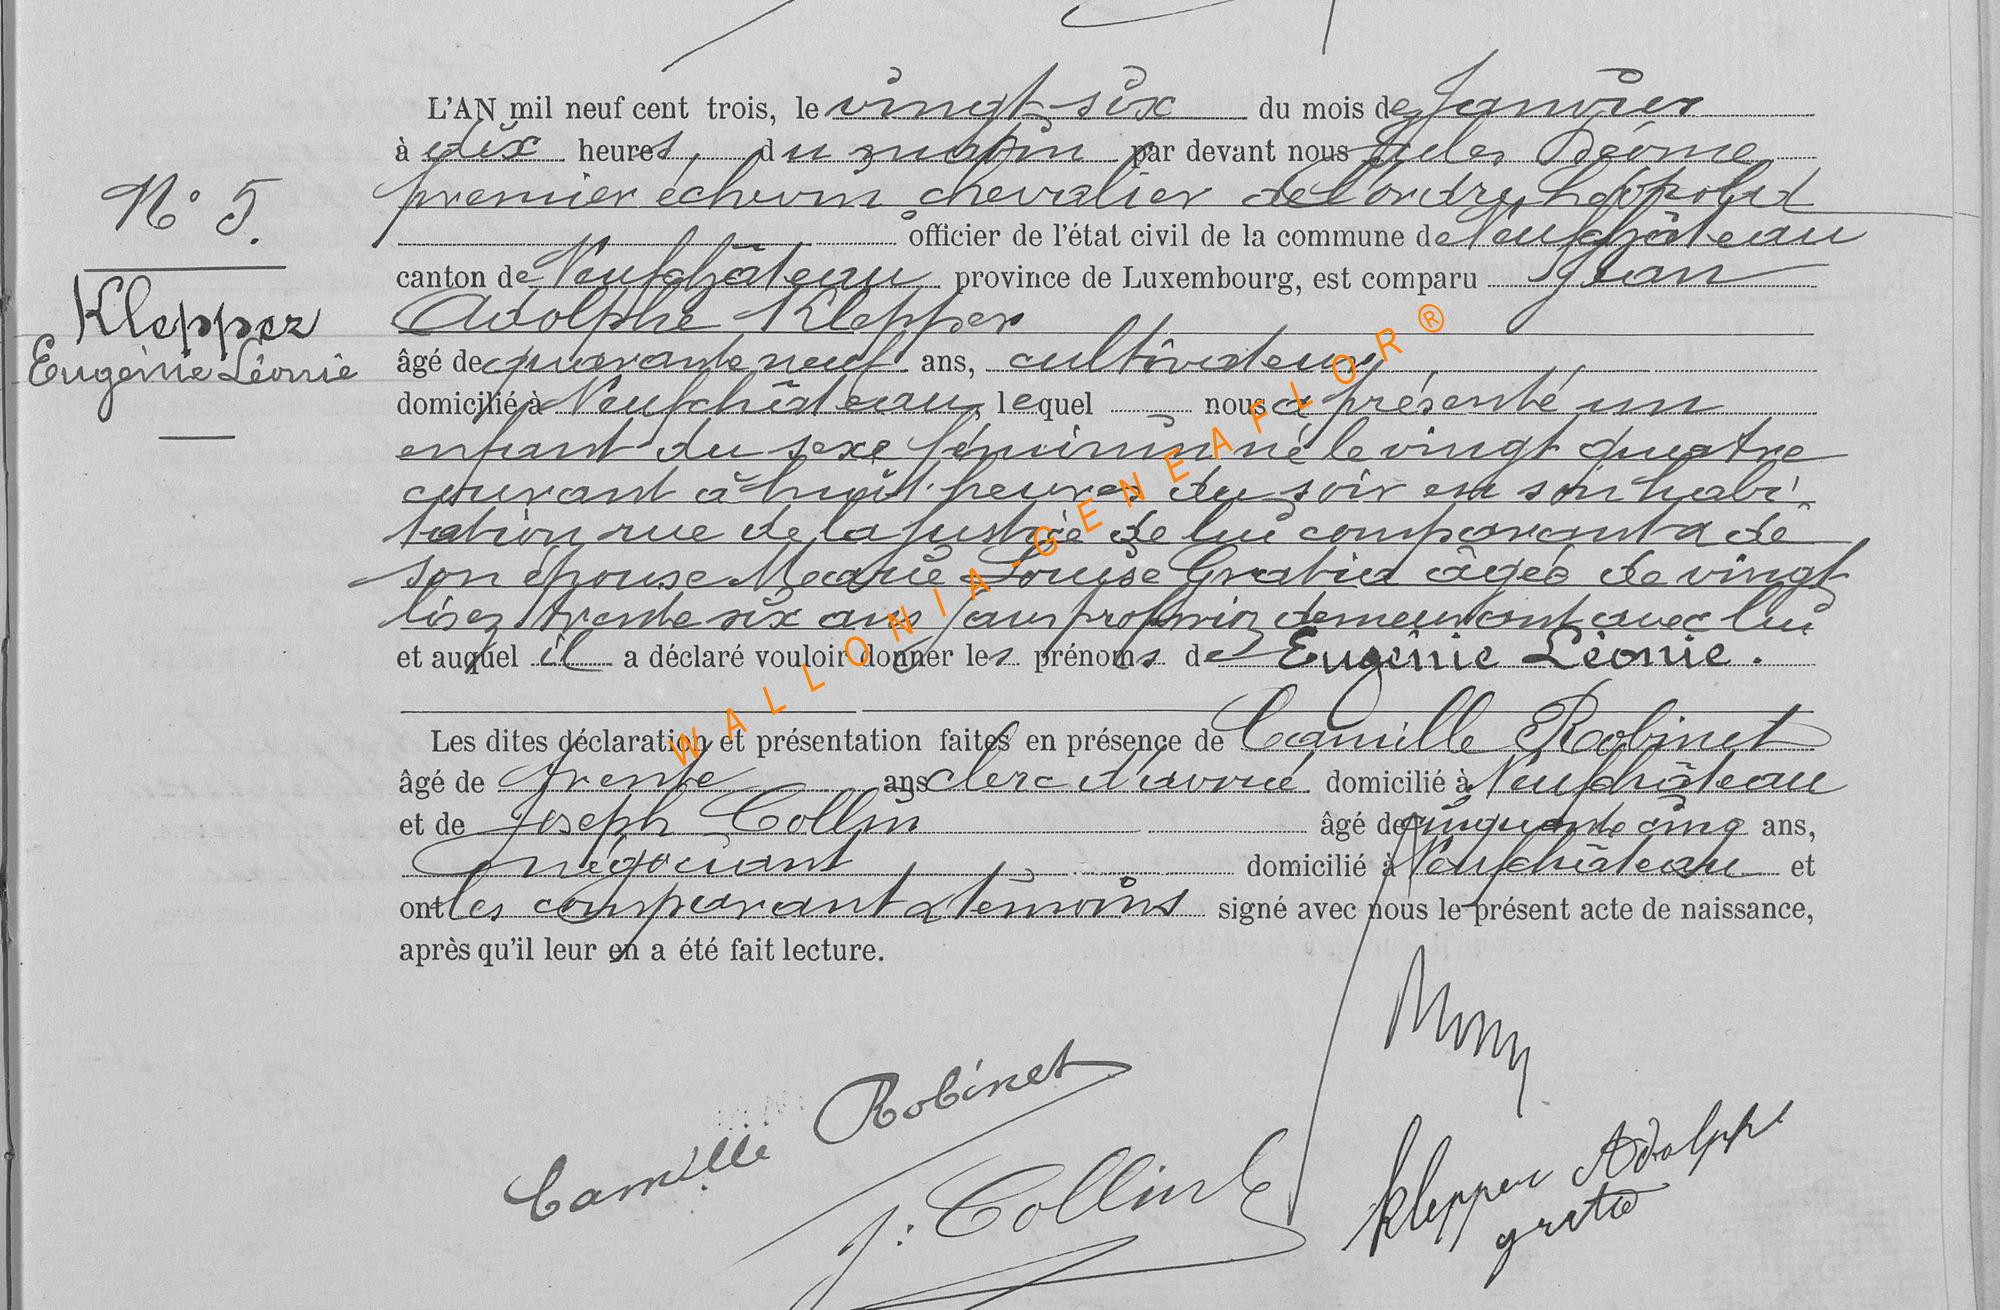 L'AN mil neuf cent trois, le vingt six du mois de Janvier
à dix heures, du matin par devant nous Jules
premier échevin chevalier de l'ordre Léopold
officier de l'état civil de la commune de Neufchâteau
N° 5.
canton de Neufchâteau province de Luxembourg, est comparu Jean
Klepper
Adolphe Klepper
Eugénie Léonie
âgé de quarante neuf ans, cultivateur
domicilié à Neufchâteau, lequel nous a présenté un
enfant du sexe féminin né le vingt quatre
courant à huit heures du soir en son habi
tation rue de la Justice de lui comparant & de
son épouse Marie Louise âgée de vingt
lisez trente six ans sans profession demeurant avec lui
et auquel il a déclaré vouloir donner les prénoms de Eugénie Léonie.
Les dites déclaration et présentation faites en présence de Camille Robinet
âgé de trente ans clerc d'avoué domicilié à Neufchâteau
et de Joseph Collin âgé de cinquante cinq ans,
négociant domicilié à Neufchâteau et
ont les comparant & témoins signé avec nous le présent acte de naissance,
après qu'il leur en a été fait lecture.
Camille Robinet
J. Collin
Klepper Adolphe
WALLONIA-GENEAFLOR®